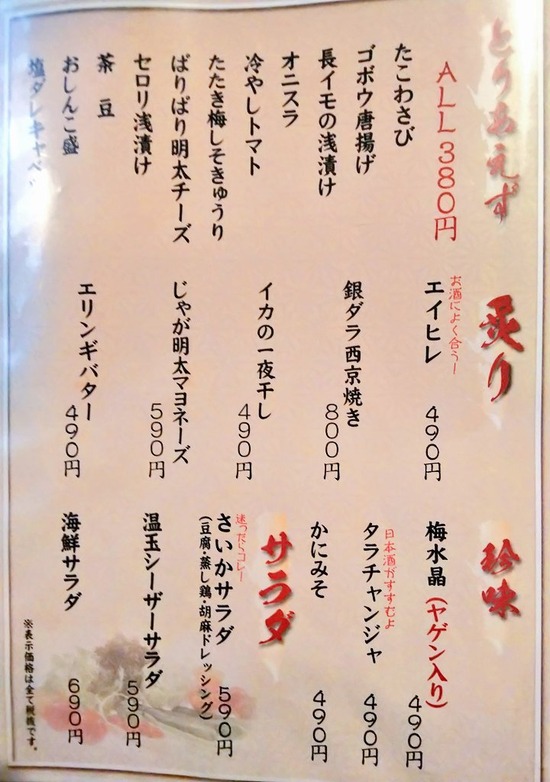 とりあえず
ALL380円
たこわさび
ゴボウ唐揚げ
長イモの浅漬け
オニスラ
冷やしトマト
たたき梅しそきゅうり
ぱりぱり明太チーズ
セロリ浅漬け
茶豆
おしんこ盛
塩ダレキャベ
炙り
お酒によく合うー
エイヒレ 490円
銀ダラ西京焼き 800円
イカの一夜干し 490円
じゃが明太マヨネーズ 590円
エリンギバター 490円
珍味
梅水晶(ヤゲン入り) 490円
日本酒がすすむよ
タラチャンジャ 490円
かにみそ 490円
サラダ
迷ったらコレー
さいかサラダ 590円
(豆腐・蒸し鶏・胡麻ドレッシング)
温玉シーザーサラダ 590円
海鮮サラダ 690円
※表示価格は全て税抜です。